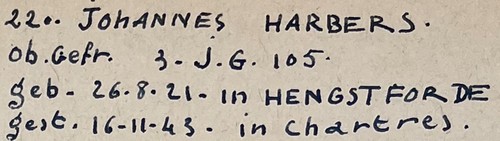 22.. JOHANNES HARBERS.
ob.Gefr. 3. J.G. 105.
geb - 26.8.21- in HENGSTFORDE
gest. 16-11-43. in Chartres.